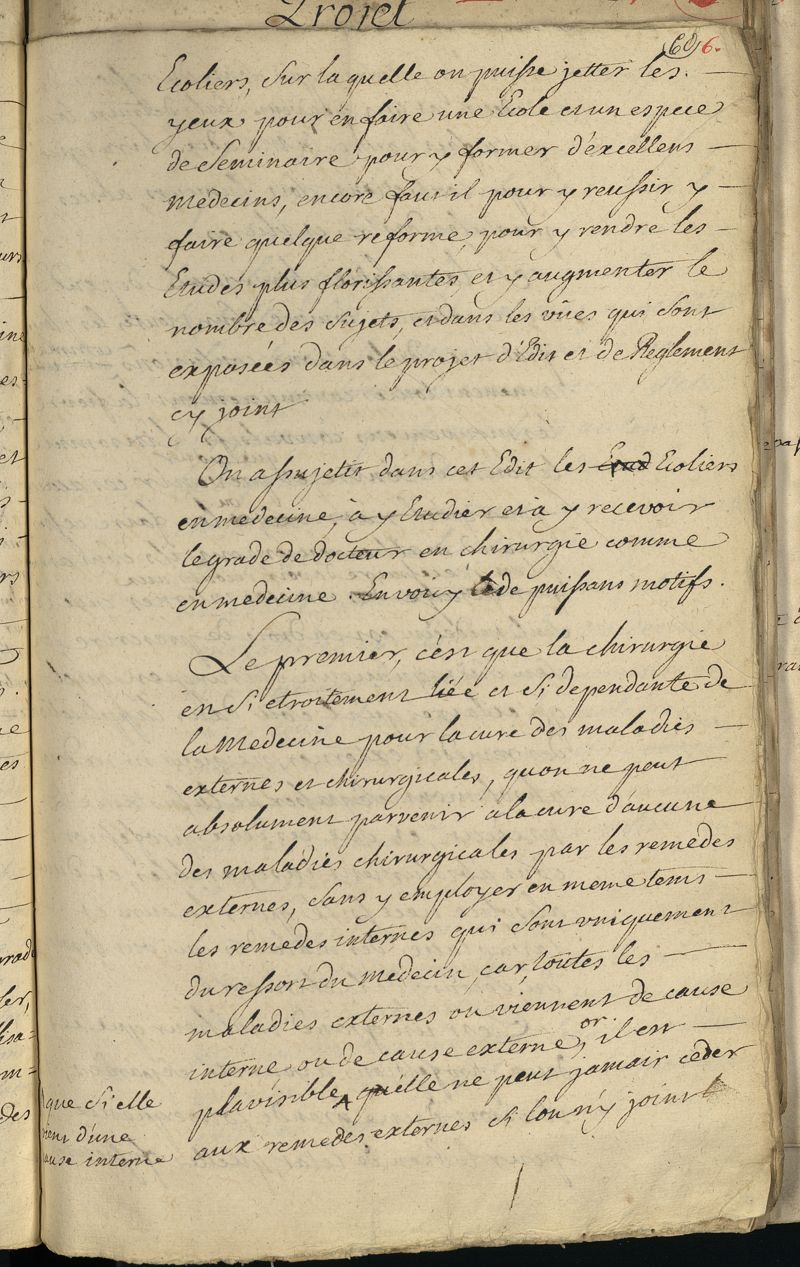 Projet
60 6.
Ecoliers, sur laquelle on puisse jetter les
yeux pour en faire une Ecole et un espece
de Seminaire pour y former d'excellens
medecins, encore faut il pour y reussir y
faire quelque reforme, pour y rendre les
Etudes plus florissantes, et y augmenter le
nombre des sujets, et dans les vües qui sont
exposées dans le projet d'Edit et de Reglement
cy joint
On assujetit dans cet Edit les Etud Ecoliers
en medecine, a y Etudier et a y recevoir
le grade de docteur en chirurgie comme
en medecine. En voicy de puissans motifs.
Le premier, c'est que la chirurgie
est si etroitement liée et si dependante de
la Medecine pour la cure des maladies
externes et chirurgicales, qu'on ne peut
absolument parvenir a la cure d'aucune
des maladies chirurgicales par les remedes
externes, sans y employer en meme tems
les remedes internes qui sont vniquement
du ressort du medecin, car, toutes les
maladies externes ou viennent de cause
interne ou de cause externe, or, il est
plus visible qu'elle ne peut jamais ceder
aux remedes externes si lon n'y joint
que si elle
vient d'une
cause interne